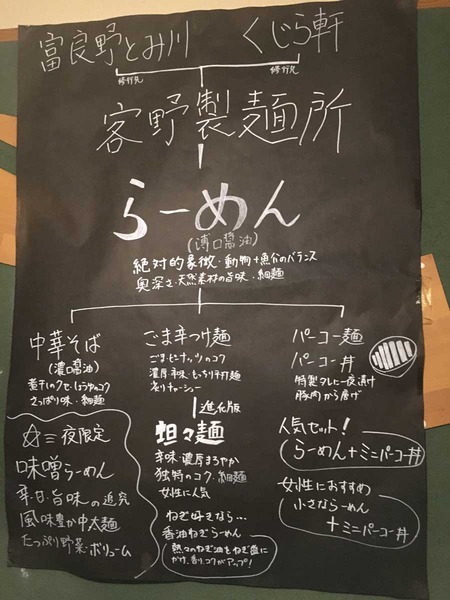 富良野とみ川 くじら軒
修行先 修行先
客野製麺所
らーめん
(薄口醤油)
絶対的象徴・動物+魚介のバランス
奥深さ・天然素材の旨味・細麺
中華そば
(濃口醤油)
煮干しのクセ・しょうゆのコク
さっぱり味・細麺
ごま辛つけ麺
ごま・ピーナッツのコク
濃厚・辛味・もっちり平打麺
炙りチャーシュー
進化版
担々麺
辛味・濃厚まろやか
独特のコク・細麺
女性に人気
ねぎ好きなら…
香油ねぎらーめん
熱々のねぎ油をねぎ盛に
かけ、香り、コクがアップ!
パーコー麺
パーコー丼
特製タレに一夜漬け
豚肉から揚げ
人気セット!
らーめん+ミニパーコー丼
女性におすすめ
小さならーめん
+ミニパーコー丼
夜限定
味噌らーめん
辛・甘・旨味の追究
風味豊か中太麺
たっぷり野菜・ボリューム